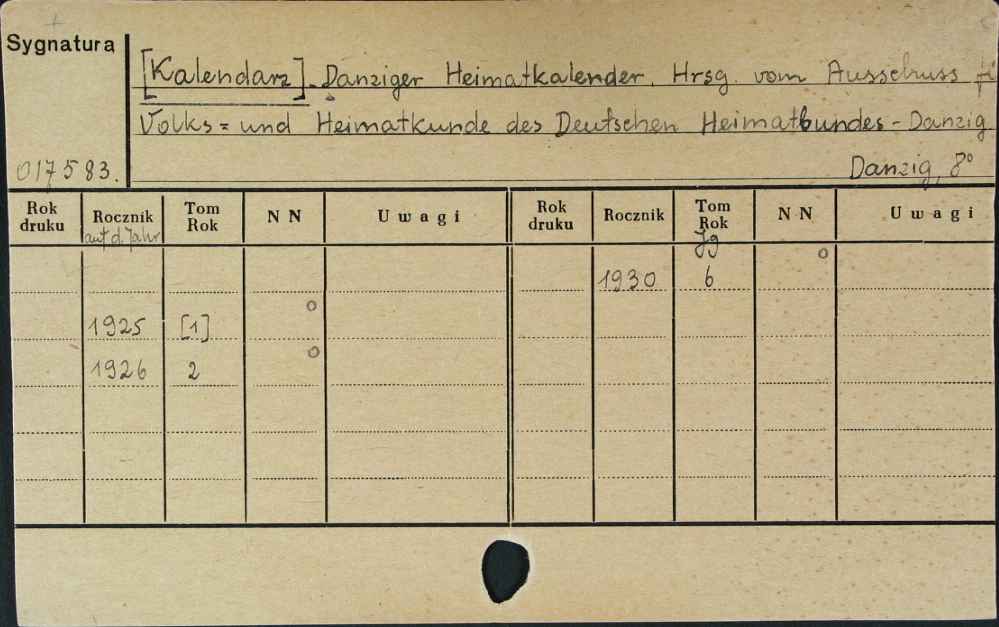 Sygnatura
[Kalendarz]. Danziger Heimatkalender. Hrsg. vom Ausschuss
Volks= und Heimatkunde des Deutschen Heimatbundes - Danzig
017583.
Danzig, 8°
Rok druku Rocznik Tom Rok N N Uwagi Rok druku Rocznik Tom Rok N N Uwagi
auf d. Jahr Jg
1930 6 o
1925 [1] o
1926 2 o